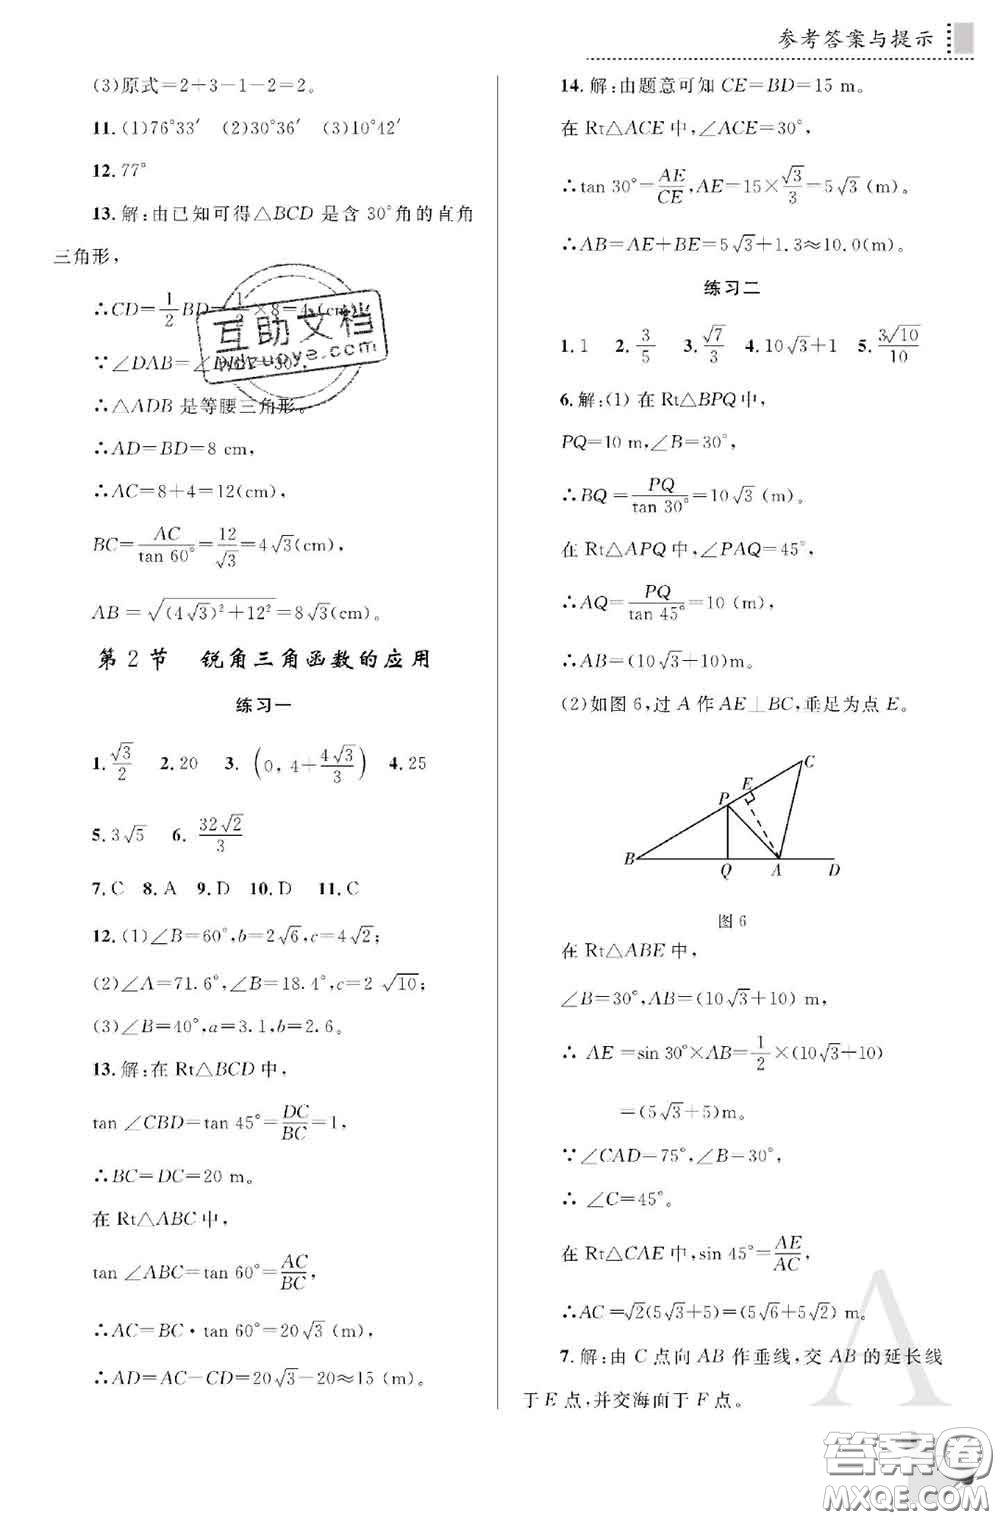 参考答案与提示
(3)原式=2+3-1-2=2。
11.(1)76°33′ (2)30°36′ (3)10°42′
12.77°
13.解:由已知可得△BCD是含30°角的直角
三角形,
∴CD=1/2 BD=1/2×8=4(cm)。
∵∠DAB=∠DBA=30°,
∴△ADB是等腰三角形。
∴AD=BD=8 cm,
∴AC=8+4=12(cm),
BC=AC/tan 60°=12/√3=4√3(cm),
AB=√((4√3)²+12²)=8√3(cm)。
第2节 锐角三角函数的应用
练习一
1.√3/2 2.20 3.(0,4+4√3/3) 4.25
5.3√5 6.32√2/3
7.C 8.A 9.D 10.D 11.C
12.(1)∠B=60°,b=2√6,c=4√2;
(2)∠A=71.6°,∠B=18.4°,c=2√10;
(3)∠B=40°,a=3.1,b=2.6。
13.解:在Rt△BCD中,
tan∠CBD=tan 45°=DC/BC=1,
∴BC=DC=20 m。
在Rt△ABC中,
tan∠ABC=tan 60°=AC/BC,
∴AC=BC·tan 60°=20√3(m),
∴AD=AC-CD=20√3-20≈15(m)。
14.解:由题意可知CE=BD=15 m。
在Rt△ACE中,∠ACE=30°,
∴tan 30°=AE/CE,AE=15×√3/3=5√3(m)。
∴AB=AE+BE=5√3+1.3≈10.0(m)。
练习二
1.1 2.3/5 3.√7/3 4.10√3+1 5.3√10/10
6.解:(1)在Rt△BPQ中,
PQ=10 m,∠B=30°,
∴BQ=PQ/tan 30°=10√3(m)。
在Rt△APQ中,∠PAQ=45°,
∴AQ=PQ/tan 45°=10(m),
∴AB=(10√3+10)m。
(2)如图6,过A作AE⊥BC,垂足为点E。
C
E
P
B
Q
A
D
图6
在Rt△ABE中,
∠B=30°,AB=(10√3+10)m,
∴AE=sin 30°×AB=1/2×(10√3+10)
=(5√3+5)m。
∵∠CAD=75°,∠B=30°,
∴∠C=45°。
在Rt△CAE中,sin 45°=AE/AC,
∴AC=√2(5√3+5)=(5√6+5√2)m。
7.解:由C点向AB作垂线,交AB的延长线
于E点,并交海面于F点。
互助文档
A
答案圈
MXQE.COM